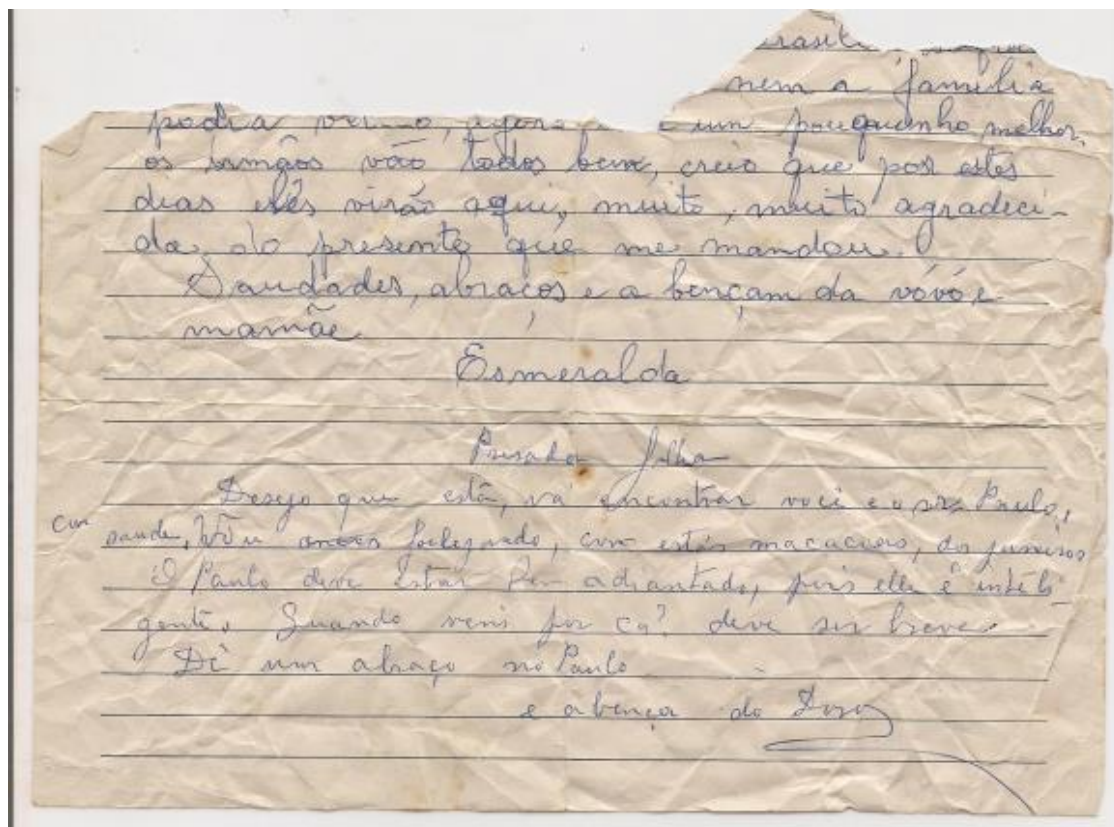 nem a família
podia agora um pouquinho melhor,
os irmãos vão todos bem, creio que por estes
dias elês virão aqui, muito, muito agradeci-
da, do presente que me mandou.
Saudades, abraços e a bençam da vóvó e
mamãe
Esmeralda
Presada filha
Desejo que está, vá encontrar você e o sr. Paulo,
com saude, folegando, com estas
O Paulo deve estar bem adiantado, pois elle é inteli
gente. Quando vens por cá? deve ser breve.
Dê um abraço no Paulo
e a bença do